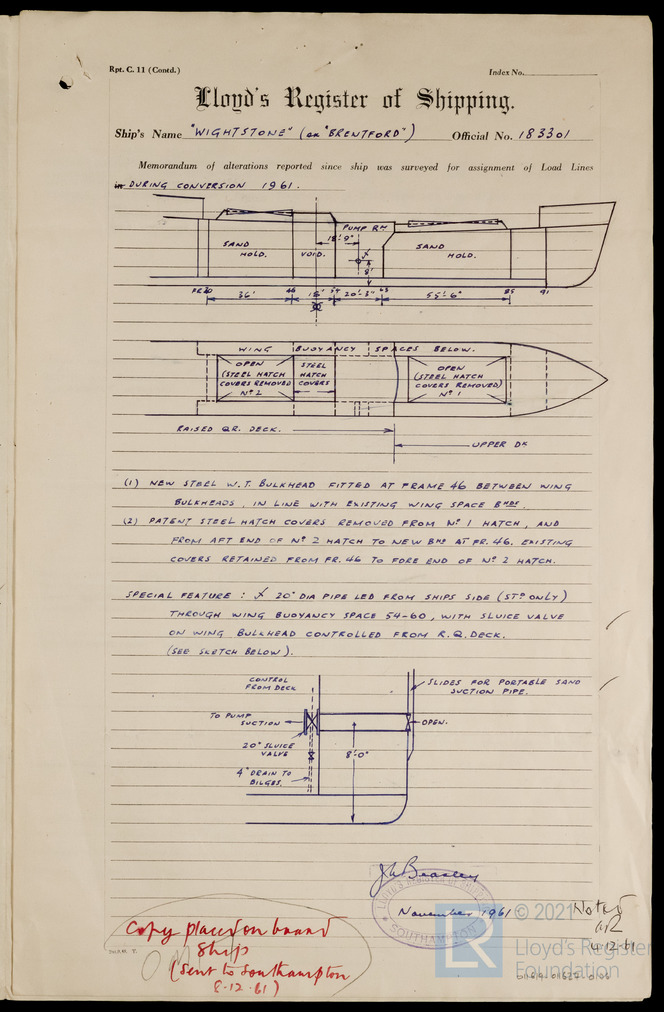 Rpt. C. 11 (Contd.)
Index No.
Lloyd's Register of Shipping.
Ship's Name "WIGHTSTONE" (ex "BRENTFORD") Official No. 183301
Memorandum of alterations reported since ship was surveyed for assignment of Load Lines
in DURING CONVERSION 1961.
PUMP RM
18'-9"
SAND HOLD.
VOID.
8'
SAND HOLD.
FR 20 46 54 63 85 91
36' 18' 20'-3" 55'-6"
WING BUOYANCY SPACES BELOW.
OPEN (STEEL HATCH COVERS REMOVED) Nº 2
STEEL HATCH COVERS
OPEN (STEEL HATCH COVERS REMOVED) Nº 1
RAISED QR. DECK.
UPPER DK
(1) NEW STEEL W.T. BULKHEAD FITTED AT FRAME 46 BETWEEN WING
BULKHEADS, IN LINE WITH EXISTING WING SPACE BHDS.
(2) PATENT STEEL HATCH COVERS REMOVED FROM Nº 1 HATCH, AND
FROM AFT END OF Nº 2 HATCH TO NEW BHD AT FR. 46. EXISTING
COVERS RETAINED FROM FR. 46 TO FORE END OF Nº 2 HATCH.
SPECIAL FEATURE : 20" DIA PIPE LED FROM SHIPS SIDE (STD ONLY)
THROUGH WING BUOYANCY SPACE 54-60, WITH SLUICE VALVE
ON WING BULKHEAD CONTROLLED FROM R.Q. DECK.
(SEE SKETCH BELOW).
CONTROL FROM DECK
SLIDES FOR PORTABLE SAND SUCTION PIPE.
TO PUMP SUCTION
OPEN.
20" SLUICE VALVE
8'-0"
4" DRAIN TO BILGES.
J W Beasley
LLOYD'S REGISTER OF SHIPPING
November 1961
SOUTHAMPTON
Copy placed on board
Ship
(Sent to Southampton
8.12.61)
Noted
4.12.61
© 2021
LR
Lloyd's Register
Foundation